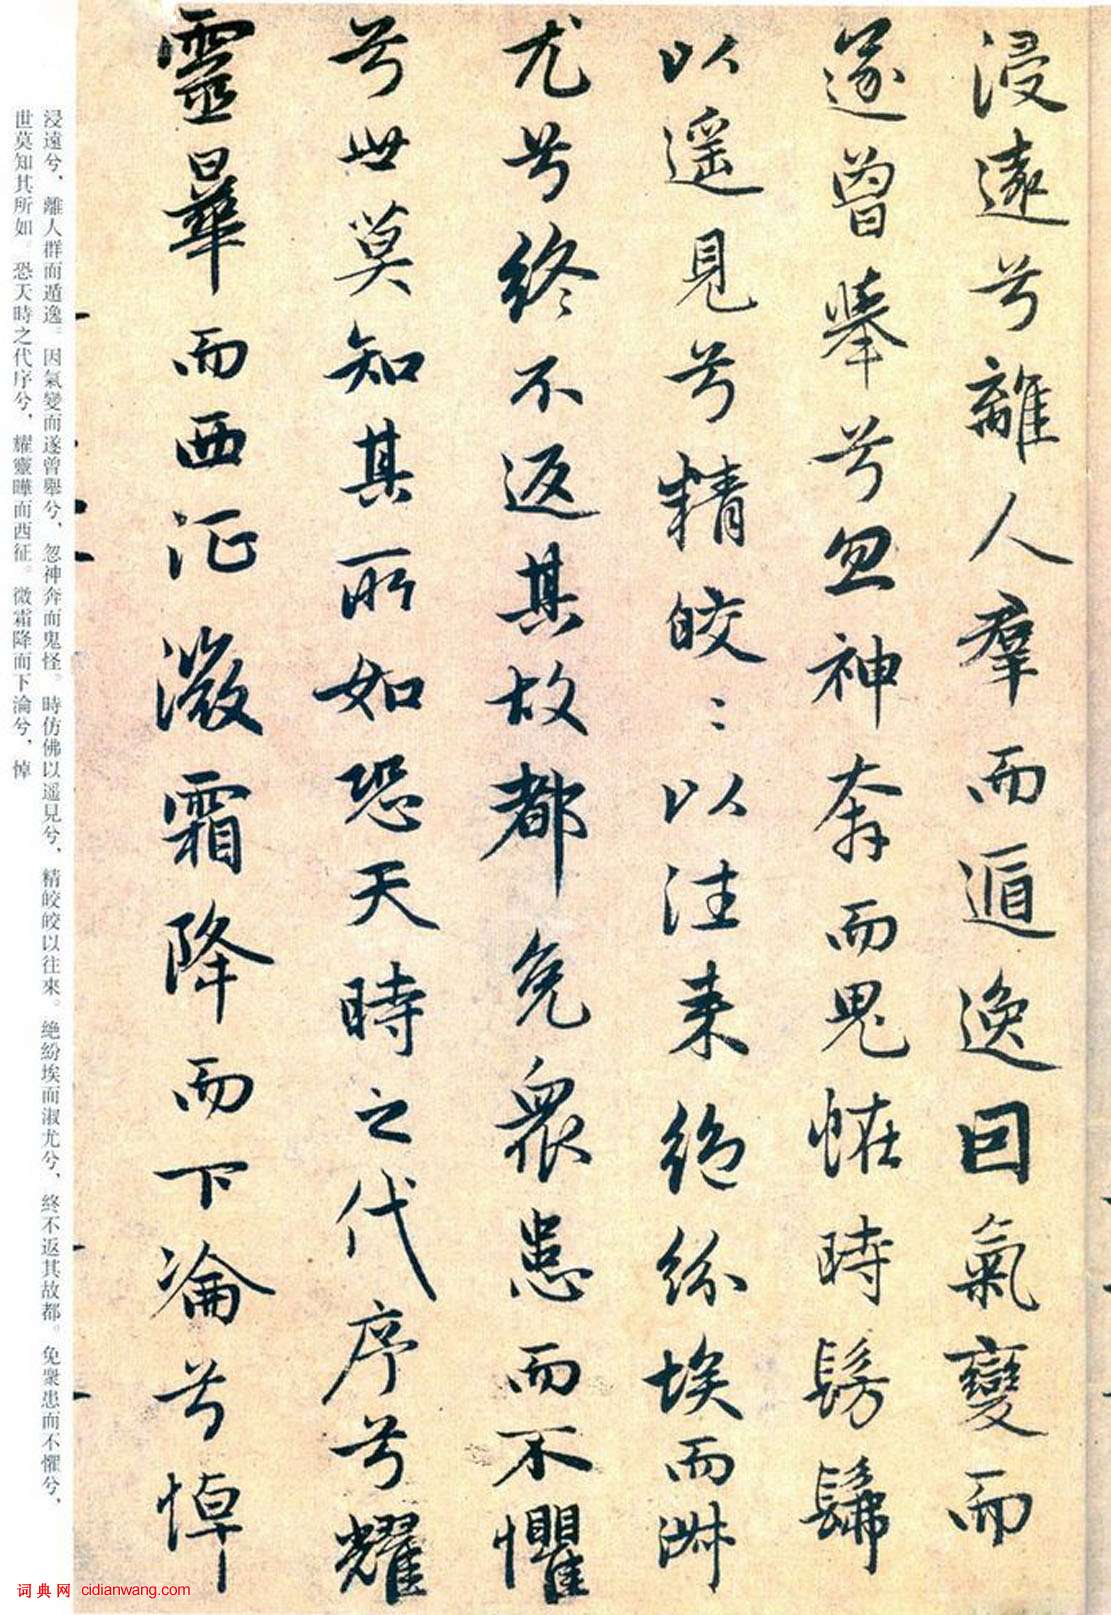 浸遠兮離人羣而遁逸因氣變而
遂曾舉兮忽神奔而鬼怪時髣髴
以遥見兮精皎〻以往来絶紛埃而淑
尤兮終不返其故都免衆患而不懼
兮世莫知其所如恐天時之代序兮耀
靈曅而西征微霜降而下淪兮悼
浸遠兮，離人群而遁逸。因氣變而遂曾舉兮，忽神奔而鬼怪。時仿佛以遥見兮，精皎皎以往來。絶紛埃而淑尤兮，終不返其故都。免衆患而不懼兮，
世莫知其所如。恐天時之代序兮，耀靈曄而西征。微霜降而下淪兮，悼
词典网 cidianwang.com